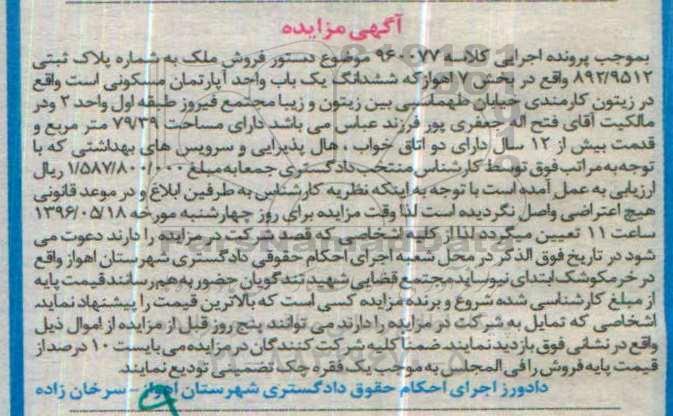 آگهی مزایده
بموجب پرونده اجرایی کلاسه ۹۶۰۰۷۷ موضوع دستور فروش ملک به شماره پلاک ثبتی
۸۹۲/۹۵۱۲ واقع در بخش ۷ اهوازکه ششدانگ یک باب واحد آپارتمان مسکونی است واقع
در زیتون کارمندی خیابان طهماسبی بین زیتون و زیبا مجتمع فیروز طبقه اول واحد ۲ ودر
مالکیت آقای فتح اله جعفری پور فرزند عباس می باشد دارای مساحت ۷۹/۳۹ متر مربع و
قدمت بیش از ۱۲ سال دارای دو اتاق خواب ، هال پذیرایی و سرویس های بهداشتی که با
توجه به مراتب فوق توسط کارشناس منتخب دادگستری جمعا به مبلغ ۱/۵۸۷/۸۰۰/۰۰۰ ریال
ارزیابی به عمل آمده است با توجه به اینکه نظریه کارشناس به طرفین ابلاغ و در موعد قانونی
هیچ اعتراضی واصل نگردیده است لذا وقت مزایده برای روز چهارشنبه مورخه ۱۳۹۶/۰۵/۱۸
ساعت ۱۱ تعیین میگردد لذا از کلیه اشخاصی که قصد شرکت در مزایده را دارند دعوت می
شود در تاریخ فوق الذکر در محل شعبه اجرای احکام حقوقی دادگستری شهرستان اهواز واقع
در خرمکوشک ابتدای نیوساید مجتمع قضایی شهید تندگویان حضور به هم رسانند قیمت پایه
از مبلغ کارشناسی شده شروع و برنده مزایده کسی است که بالاترین قیمت را پیشنهاد نماید.
اشخاصی که تمایل به شرکت در مزایده را دارند می توانند پنج روز قبل از مزایده از اموال ذیل
واقع در نشانی فوق بازدید نمایند. ضمنا کلیه شرکت کنندگان در مزایده می بایست ۱۰ درصد از
قیمت پایه فروش را فی المجلس به موجب یک فقره چک تضمینی تودیع نمایند.
دادورز اجرای احکام حقوق دادگستری شهرستان اهواز - سرخان زاده